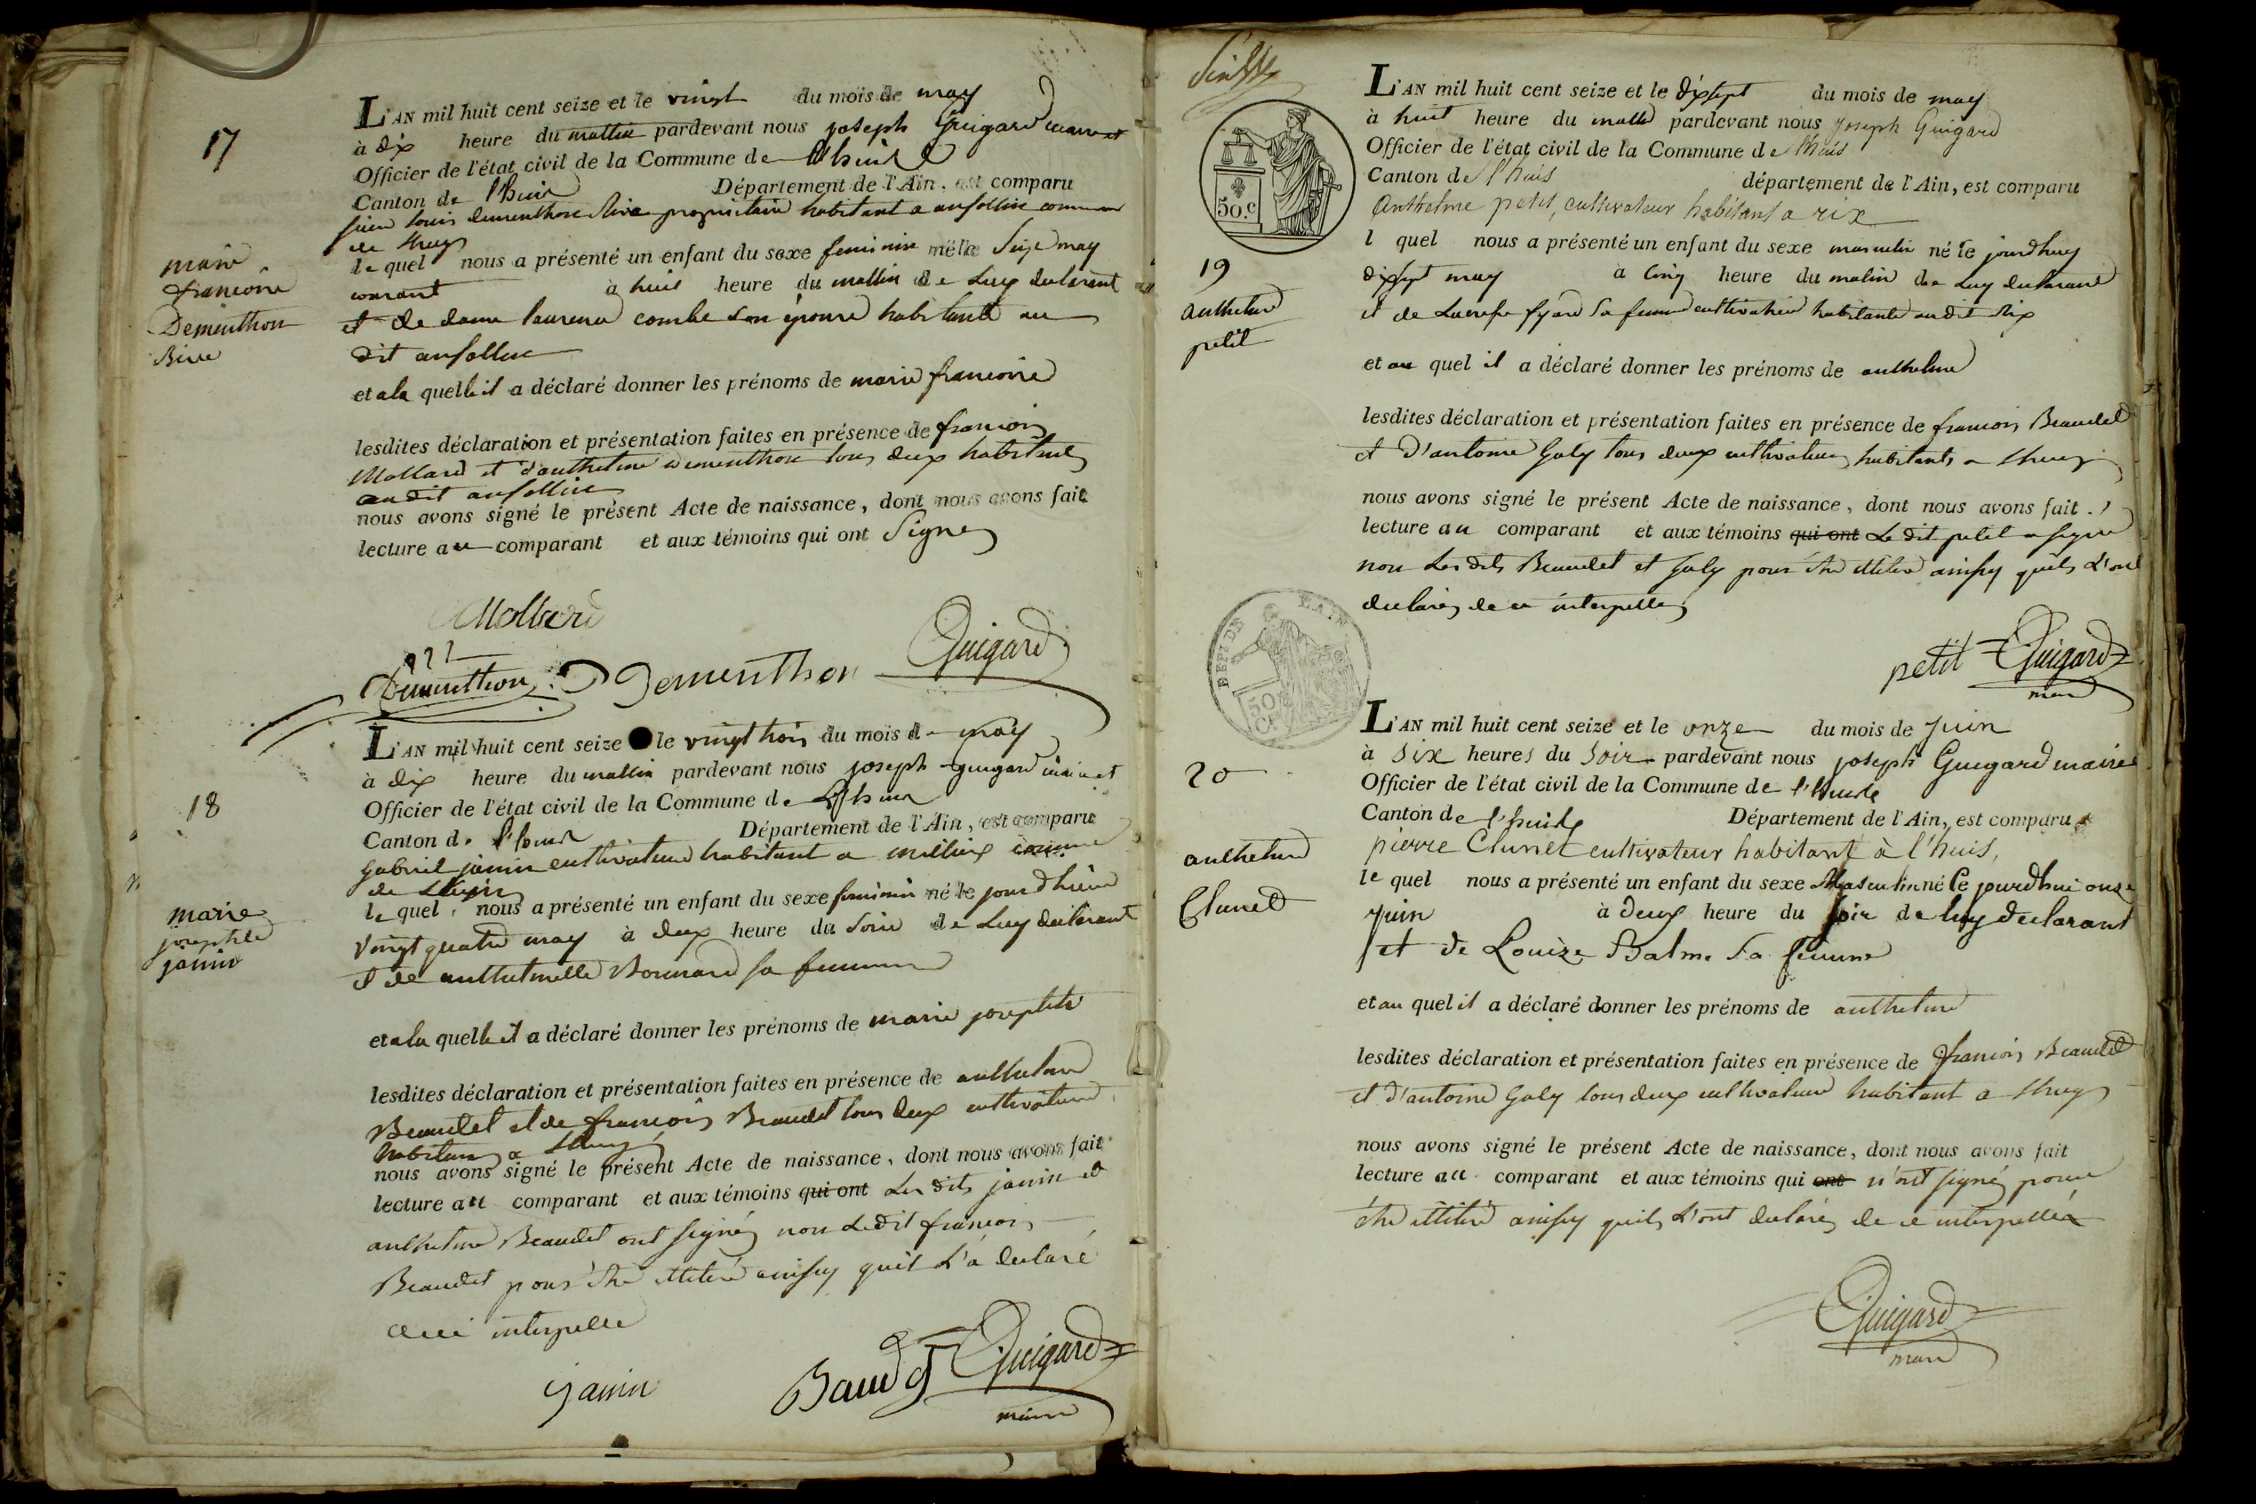 17
marie
francoise
Dementhon
Rive
L'AN mil huit cent seize et le vingt du mois de may
à dix heure du mattin pardevant nous joseph Guigard maire et
Officier de l'état civil de la Commune de
Canton de l'huis Département de l'Ain, est comparu
louis dementhon Rive propriétaire habitant a ansollin commune
de
le quel nous a présenté un enfant du sexe feminin né le Seize may
courant à huit heure du mattin de Luy declarant
et de dame combe son épouse habitante au
dit ansollin
et a la quelle il a déclaré donner les prénoms de marie francoise
lesdites déclaration et présentation faites en présence de francois
Mollard et d'anthelme dementhon tous deux habitants
au dit ansollin
nous avons signé le présent Acte de naissance, dont nous avons fait
lecture au comparant et aux témoins qui ont Signes
Mollard
Dementhon Dementhon Guigard
18
marie
josephte
janin
L'AN mil huit cent seize le vingt trois du mois de may
à dix heure du mattin pardevant nous joseph guigard maire et
Officier de l'état civil de la Commune de
Canton de l'huis Département de l'Ain, est comparu
gabriel janin cultivateur habitant a comune
de
le quel nous a présenté un enfant du sexe feminin né le jourd'huy
vingt quatre may à deux heure du Soir de Luy declarant
et de anthelmette Bonnard sa femme
et a la quelle il a déclaré donner les prénoms de marie josephte
lesdites déclaration et présentation faites en présence de anthelme
Beaudet et de francois Beaudet tous deux cultivateurs
habitans a
nous avons signé le présent Acte de naissance, dont nous avons fait
lecture au comparant et aux témoins qui ont Les dits janin et
anthelme Beaudet ont signés non Ledit francois
Beaudet pour être illitéré ainsy quil L'a declaré
interpellé
janin Baudet Guigard
maire
50.C
19
anthelme
petit
L'AN mil huit cent seize et le dixsept du mois de may
à huit heure du matin pardevant nous joseph Guigard
Officier de l'état civil de la Commune de lhuis
Canton de l'huis département de l'Ain, est comparu
Anthelme petit, cultivateur habitant a rix
l quel nous a présenté un enfant du sexe masculin né le jourdhuy
dixsept may à cinq heure du matin de Luy declarant
et de fyard sa femme cultivatrice habitante au dit Rix
et au quel il a déclaré donner les prénoms de anthelme
lesdites déclaration et présentation faites en présence de francois Beaudet
et d'antoine Galy tous deux cultivateurs habitants a
nous avons signé le présent Acte de naissance, dont nous avons fait
lecture au comparant et aux témoins qui ont Le dit petit a signé
non Les dits Beaudet et Galy pour être illitéré ainsy quils L'ont
declarés de ce interpellés
petit Guigard
maire
DEP. DE L'AIN
50
20
anthelme
Clunet
L'AN mil huit cent seize et le onze du mois de Juin
à six heures du soir pardevant nous joseph Guigard maire
Officier de l'état civil de la Commune de l'huis
Canton de l'huis Département de l'Ain, est comparu
pierre Clunet cultivateur habitant à l'huis,
le quel nous a présenté un enfant du sexe Masculin né le jourdhui onze
Juin à deux heure du soir de luy declarant
et de Louize Balme sa femme
et au quel il a déclaré donner les prénoms de anthelme
lesdites déclaration et présentation faites en présence de francois Beaudet
et d'antoine Galy tous deux cultivateurs habitant a
nous avons signé le présent Acte de naissance, dont nous avons fait
lecture au comparant et aux témoins qui ont n'ont signés pour
être illitéré ainsy quils L'ont declarés de ce interpellés
Guigard
maire